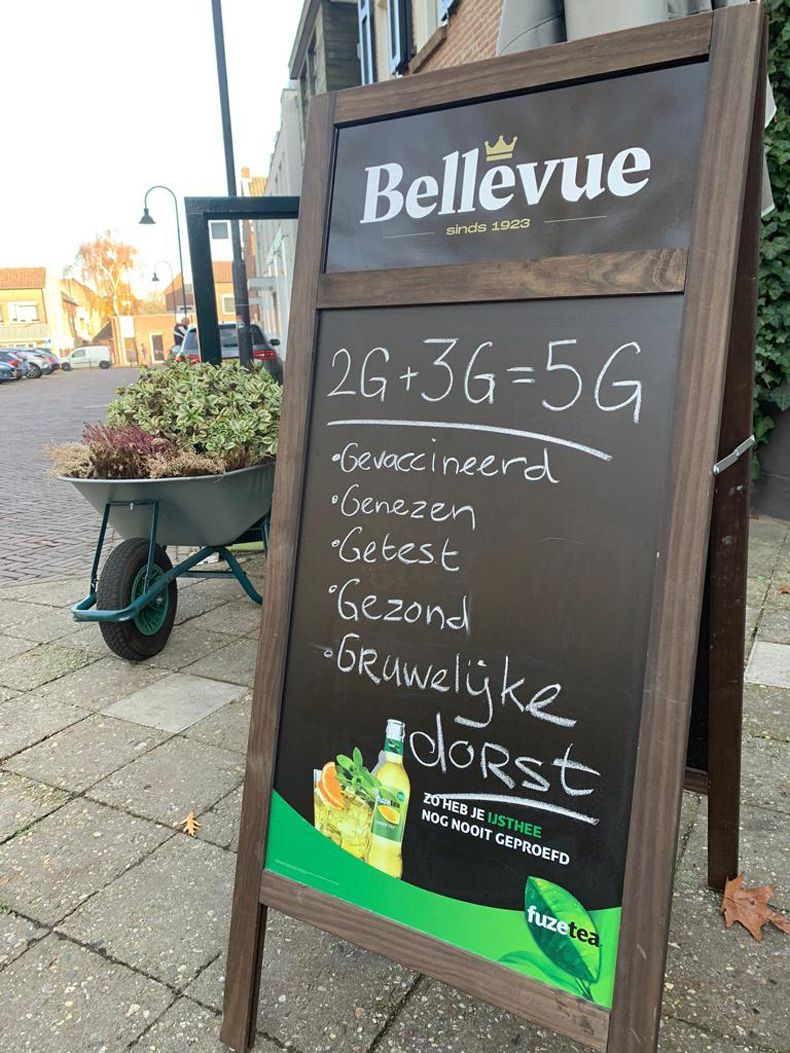 Bellevue
sinds 1923
2G+3G=5G
•Gevaccineerd
•Genezen
•Getest
•Gezond
•Gruwelijke
dorst
ZO HEB JE IJSTHEE
NOG NOOIT GEPROEFD
fuzetea